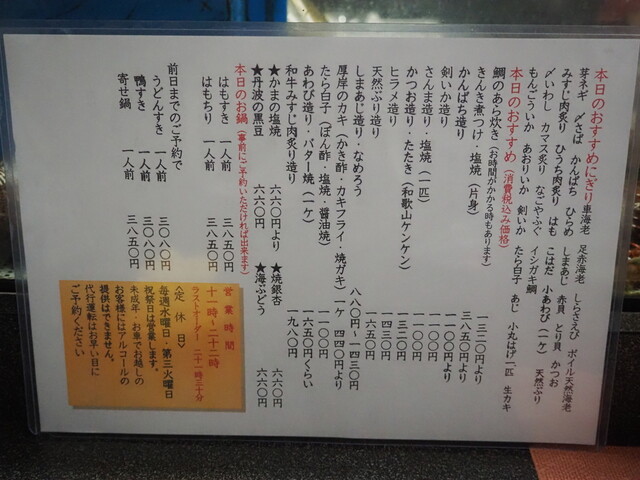 本日のおすすめにぎり
車海老　足赤海老　しらさえび　ボイル天然海老
芽ネギ　〆さば　かんぱち　ひらめ　しまあじ　赤貝　とり貝　かつお
みすじ肉炙り　ひうち肉炙り　はも　こはだ　小あわび（一ケ）　天然ぶり
〆いわし　カマス炙り　なごやふぐ　イシガキ鯛
もんごういか　あおりいか　剣いか　たら白子　あじ　小丸はげ一匹　生カキ
本日のおすすめ（消費税込み価格）
鯛のあら炊き（お時間がかかる時もあります）　一三二〇円より
きんき煮つけ・塩焼（片身）　三八五〇円より
かんぱち造り　一一〇〇円より
剣いか造り　一八五〇円
さんま造り・塩焼（一匹）　一一〇〇円
かつお造り・たたき（和歌山ケンケン）　一三二〇円
ヒラメ造り　一四三〇円
天然ぶり造り　一六五〇円
しまあじ造り・なめろう　八八〇円～一四三〇円
厚岸のカキ（かき酢・カキフライ・焼ガキ）一ケ　四四〇円より
たら白子（ぽん酢・塩焼・醤油焼）　一一〇〇円
あわび造り・バター焼（一ケ）　一六五〇円くらい
和牛みすじ肉炙り造り　一九八〇円
★かまの塩焼　六六〇円より　★焼銀杏　六六〇円
★丹波の黒豆　六六〇円　★海ぶどう　六六〇円
本日のお鍋（事前にご予約いただければ出来ます）
はもすき　一人前　三八五〇円
はもちり　一人前　三八五〇円
前日までのご予約で
うどんすき　一人前　三〇八〇円
鴨すき　一人前　三〇八〇円
寄せ鍋　一人前　三八五〇円
営業時間
十一時～二十二時
ラストオーダー　二十一時三十分
〈定休日〉
毎週水曜日・第三火曜日
祝祭日は営業します。
未成年・お車でお越しの
お客様にはアルコールの
提供はできません。
代行運転はお早い目に
ご予約ください